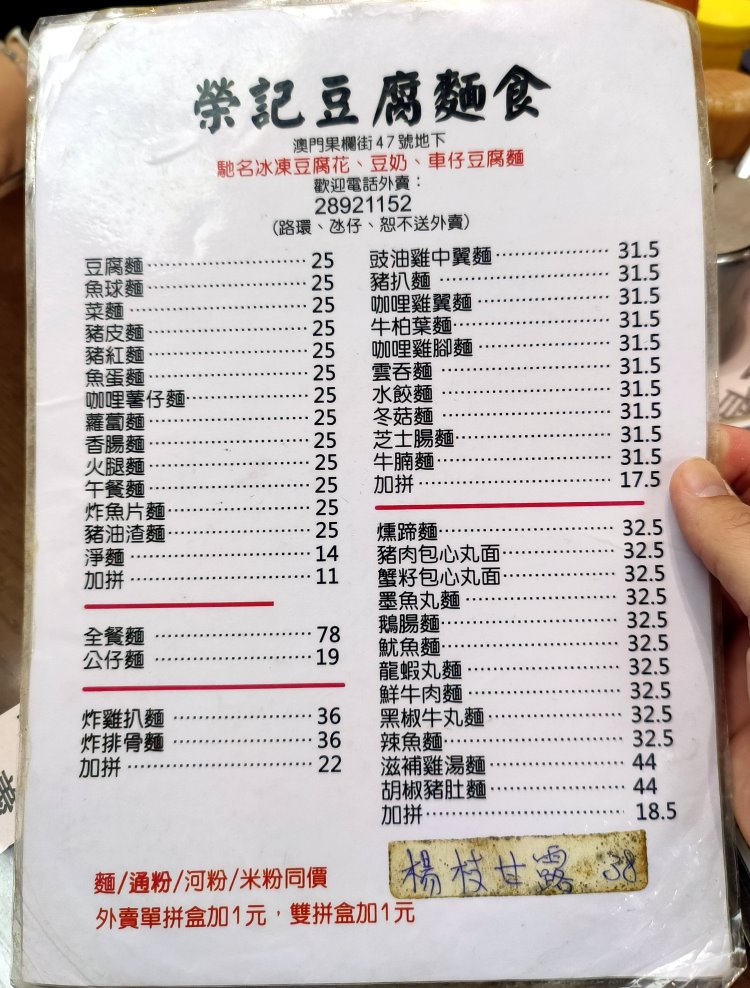 榮記豆腐麵食
澳門果欄街47號地下
馳名冰凍豆腐花、豆奶、車仔豆腐麵
歡迎電話外賣：
28921152
(路環、氹仔、恕不送外賣)
豆腐麵 25
魚球麵 25
菜麵 25
豬皮麵 25
豬紅麵 25
魚蛋麵 25
咖哩薯仔麵 25
蘿蔔麵 25
香腸麵 25
火腿麵 25
午餐麵 25
炸魚片麵 25
豬油渣麵 25
淨麵 14
加拼 11
全餐麵 78
公仔麵 19
炸雞扒麵 36
炸排骨麵 36
加拼 22
豉油雞中翼麵 31.5
豬扒麵 31.5
咖哩雞翼麵 31.5
牛柏葉麵 31.5
咖哩雞腳麵 31.5
雲吞麵 31.5
水餃麵 31.5
冬菇麵 31.5
芝士腸麵 31.5
牛腩麵 31.5
加拼 17.5
燻蹄麵 32.5
豬肉包心丸面 32.5
蟹籽包心丸面 32.5
墨魚丸麵 32.5
鵝腸麵 32.5
魷魚麵 32.5
龍蝦丸麵 32.5
鮮牛肉麵 32.5
黑椒牛丸麵 32.5
辣魚麵 32.5
滋補雞湯麵 44
胡椒豬肚麵 44
加拼 18.5
楊枝甘露 38
麵/通粉/河粉/米粉同價
外賣單拼盒加1元，雙拼盒加1元